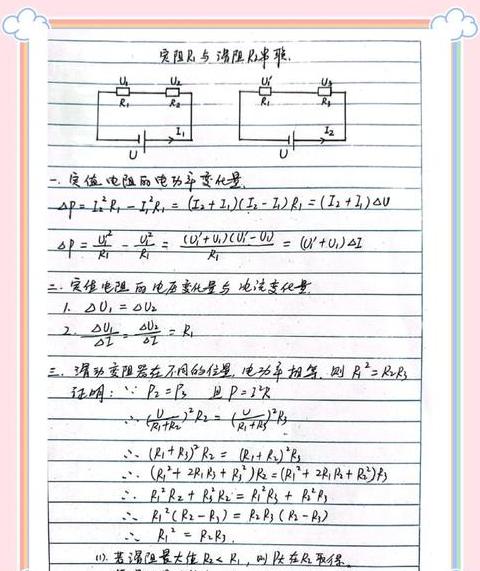 定阻R₁与滑阻R₂串联.
U₁ U₂ U₁' U₃
R₁ R₂ R₁ R₃
I₁ I₂
U U
一. 定值电阻的电功率变化量.
ΔP = I₂²R₁ - I₁²R₁ = (I₂+I₁)(I₂-I₁)R₁ = (I₂+I₁)ΔU
ΔP = U₁'²/R₁ - U₁²/R₁ = (U₁'+U₁)(U₁'-U₁)/R₁ = (U₁'+U₁)ΔI
二. 定值电阻的电压变化量与电流变化量.
1. ΔU₁ = ΔU₂
2. ΔU₁/ΔI = ΔU₂/ΔI = R₁
三. 滑动变阻器在不同的位置, 电功率相等. 则 R₁² = R₂R₃
证明: ∵ P₂ = P₃ 且 P = I²R
∴ (U/(R₁+R₂))²R₂ = (U/(R₁+R₃))²R₃
∴ (R₁+R₃)²R₂ = (R₁+R₂)²R₃
∴ (R₁²+2R₁R₃+R₃²)R₂ = (R₁²+2R₁R₂+R₂²)R₃
∴ R₁²R₂ + R₃²R₂ = R₁²R₃ + R₂²R₃
∴ R₁²(R₂-R₃) = R₂R₃(R₂-R₃)
∴ R₁² = R₂R₃.
(1). 若滑阻最大值R₂ < R₁, 则P大在R₂取得.